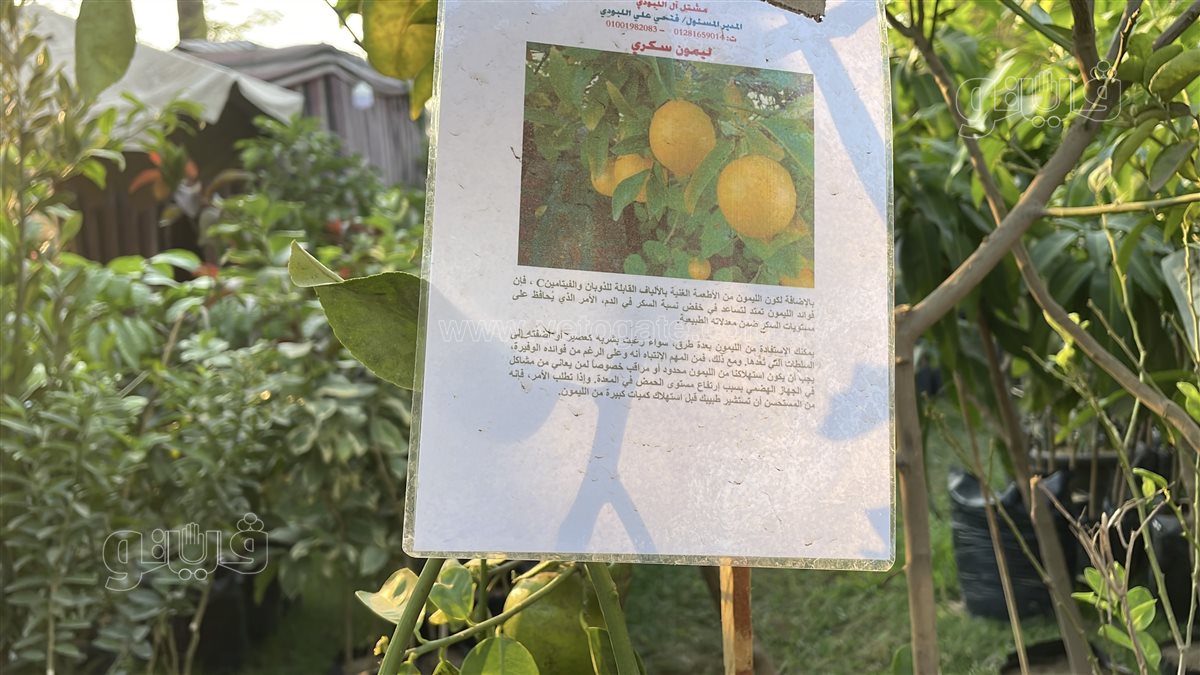 مشتل آل اللبودي
المدير المسئول/ فتحي علي اللبودي
ت: 01281659014 – 01001982083
ليمون سكري
بالإضافة لكون الليمون من الأطعمة الغنية بالألياف القابلة للذوبان والفيتامينC ، فإن
فوائد الليمون تمتد لتساعد في خفض نسبة السكر في الدم، الأمر الذي يُحافظ على
مستويات السكر ضمن معدلاته الطبيعية.
يمكنك الإستفادة من الليمون بعدة طرق، سواءً رغبت بشربه كعصير أو أضفته إلى
السلطات التي تُعدّها. ومع ذلك، فمن المهم الإنتباه أنه وعلى الرغم من فوائده الوفيرة،
يجب أن يكون استهلاكنا من الليمون محدود أو مراقب خصوصاً لمن يعاني من مشاكل
في الجهاز الهضمي بسبب ارتفاع مستوى الحمض في المعدة. وإذا تطلب الأمر، فإنه
من المستحسن أن تستشير طبيبك قبل استهلاك كميات كبيرة من الليمون.
فيتو
فيتو